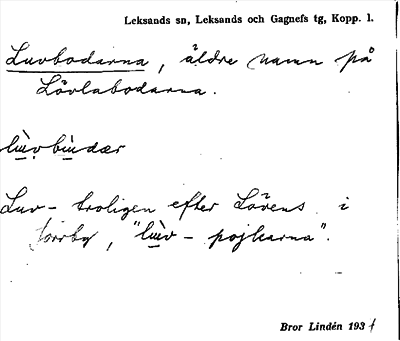 Leksands sn, Leksands och Gagnefs tg, Kopp. l.
Luvbodarna, äldre namn på
Lövlabodarna.
lùvbùdær
Luv- troligen efter Lövens i
"lùv - pojkarna".
Bror Lindén 1934